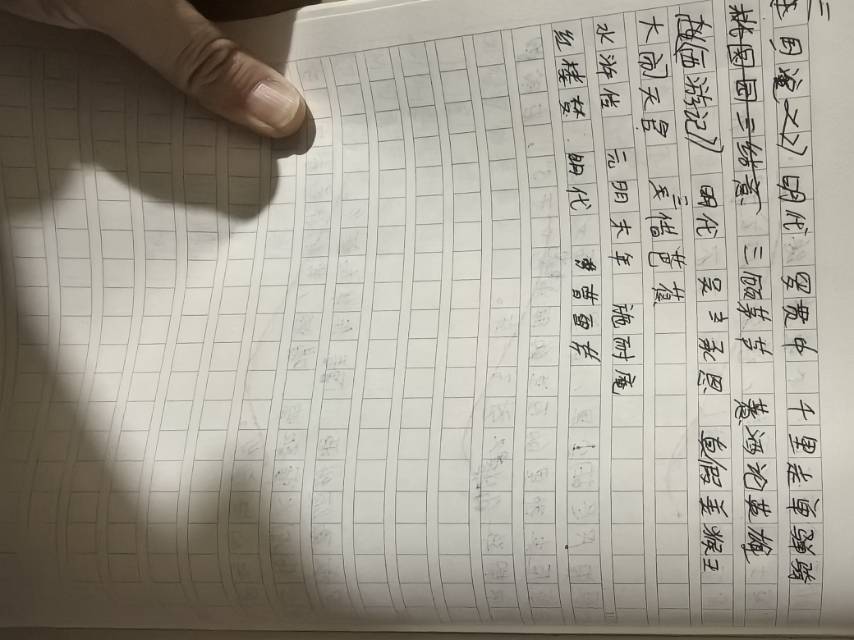 三国演义》明代 罗贯中 千里走单骑
桃园三结义 三顾茅芦 煮酒论英雄
《西游记》 明代 吴承恩 真假美猴王
大闹天宫 三借芭蕉
水浒传 元明末年 施耐庵
红楼梦 明代 曹雪芹